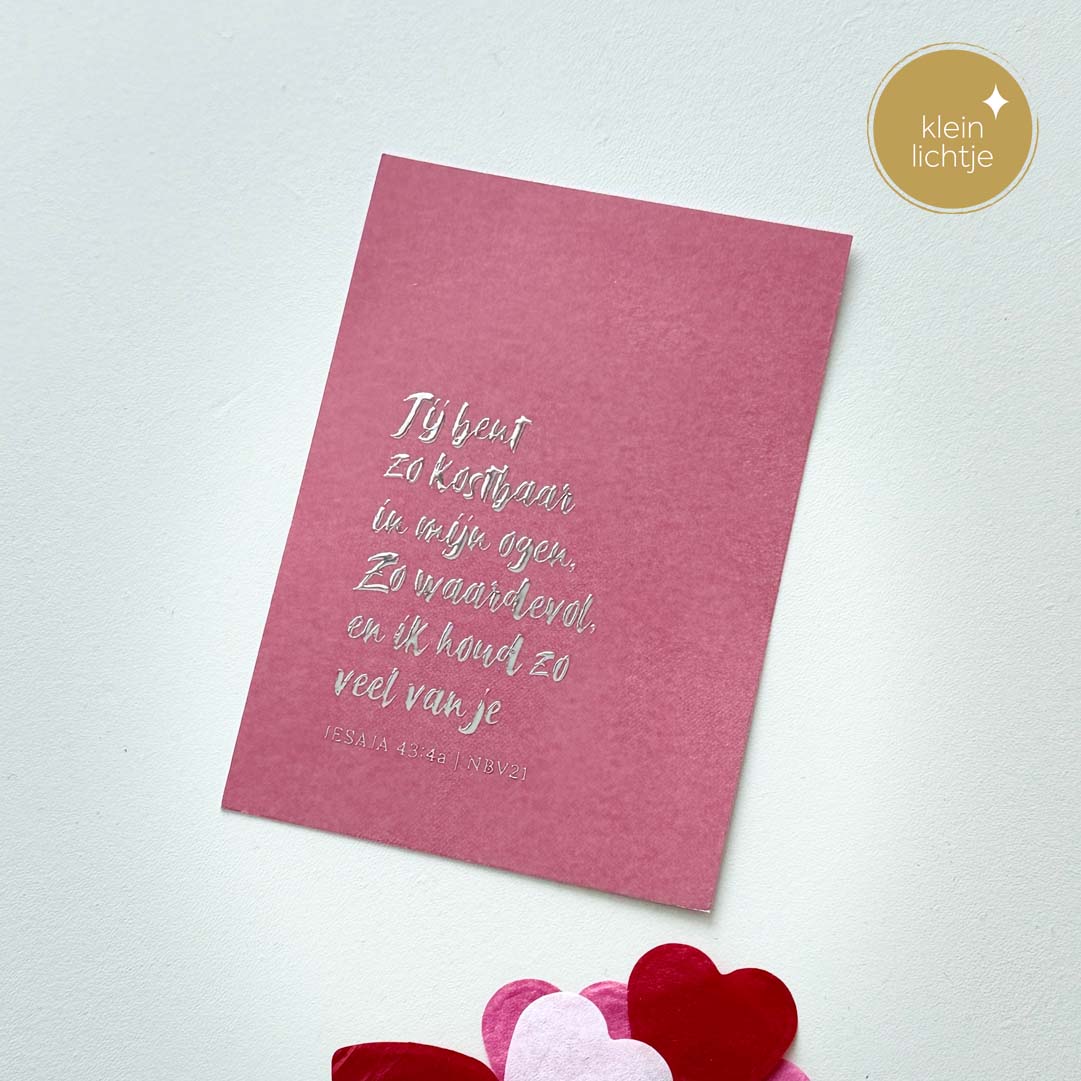 klein
lichtje
Jij bent
zo kostbaar
in mijn ogen,
Zo waardevol,
en ik houd zo
veel van je
JESAJA 43:4a | NBV21